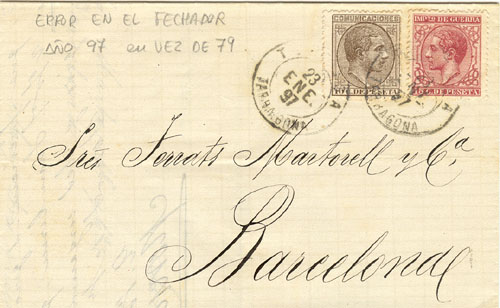 ERROR EN EL FECHADOR
AÑO 97 en VEZ DE 79.
COMUNICACIONES
DE PESETA
IMPTO DE GUERRA
DE PESETA
23
ENE.
97
TARRAGONA
97
TARRAGONA
Sres Ferrats Martorell y Cª
Barcelona